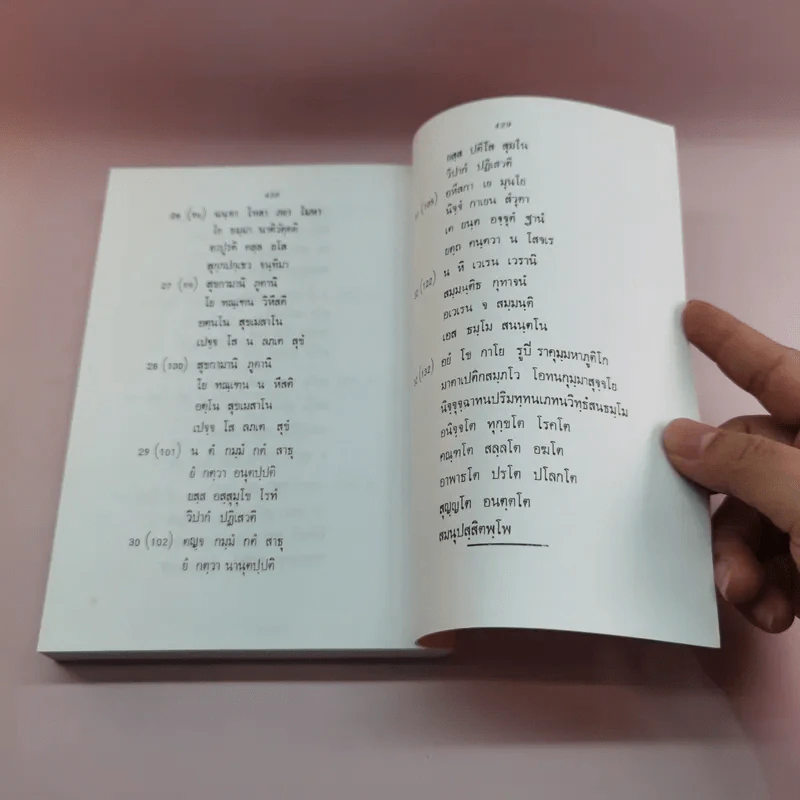 26 (๙๘) ฉนฺทา โทสา ภยา โมหา
โย ธมฺมํ นาติวตฺตติ
อาปูรติ ตสฺส ยโส
สุกฺกปกฺเขว จนฺทิมา
27 (๙๙) สุขกามานิ ภูตานิ
โย ทณฺเฑน วิหึสติ
อตฺตโน สุขเมสาโน
เปจฺจ โส น ลภเต สุขํ
28 (100) สุขกามานิ ภูตานิ
โย ทณฺเฑน น หึสติ
อตฺโน สุขเมสาโน
เปจฺจ โส ลภเต สุขํ
29 (101) น ตํ กมฺมํ กตํ สาธุ
ยํ กตฺวา อนุตปฺปติ
ยสฺส อสฺสุมุโข โรทํ
วิปากํ ปฏิเสวติ
30 (102) ตญฺจ กมฺมํ กตํ สาธุ
ยํ กตฺวา นานุตปฺปติ
ยสฺส ปตีโต สุมโน
วิปากํ ปฏิเสวติ
อหึสกา เย มุนโย
นิจฺจํ กาเยน สํวุตา
เต ยนฺต อจฺจุตํ ฐานํ
ยตฺถ คนฺตฺวา น โสจเร
น หิ เวเรน เวรานิ
สมฺมนฺตีธ กุทาจนํ
อเวเรน จ สมฺมนฺติ
เอส ธมฺโม สนนฺตโน
อยํ โข กาโย รูปี จาตุมฺมหาภูติโก
มาตาเปติกสมฺภโว โอทนกุมฺมาสุจฺจโย
นิจฺจุจฺฉาทนปริมทฺทนเภทนวิทฺธํสนธมฺโม
อนิจฺจโต ทุกฺขโต โรคโต
คณฺฑโต สลฺลโต อฆโต
อาพาธโต ปรโต ปโลกโต
สุญฺญโต อนตฺตโต
สมนุปสฺสิตพฺโพ